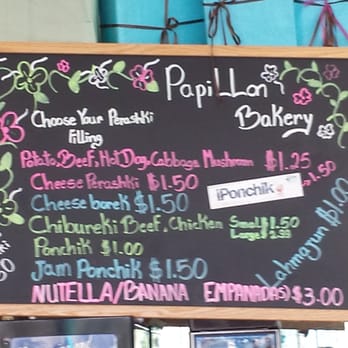 Papillon
Bakery
Choose Your Perashki
Filling
Potato, Beef, Hot Dog, Cabbage Mushroom $1.25
Cheese Perashki $1.50
iPonchik
1.50
Cheese borek $1.50
Chibureki Beef, Chicken Small $1.50
Large $2.99
Ponchik $1.00
Jam Ponchik $1.50
Lahmajun $1.00
NUTELLA/BANANA EMPANADAS) $3.00